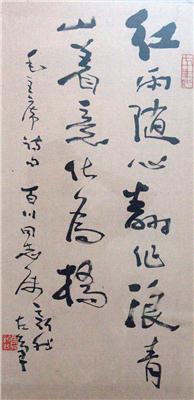 红雨随心翻作浪青
山着意化为桥
毛主席诗句 百川同志属